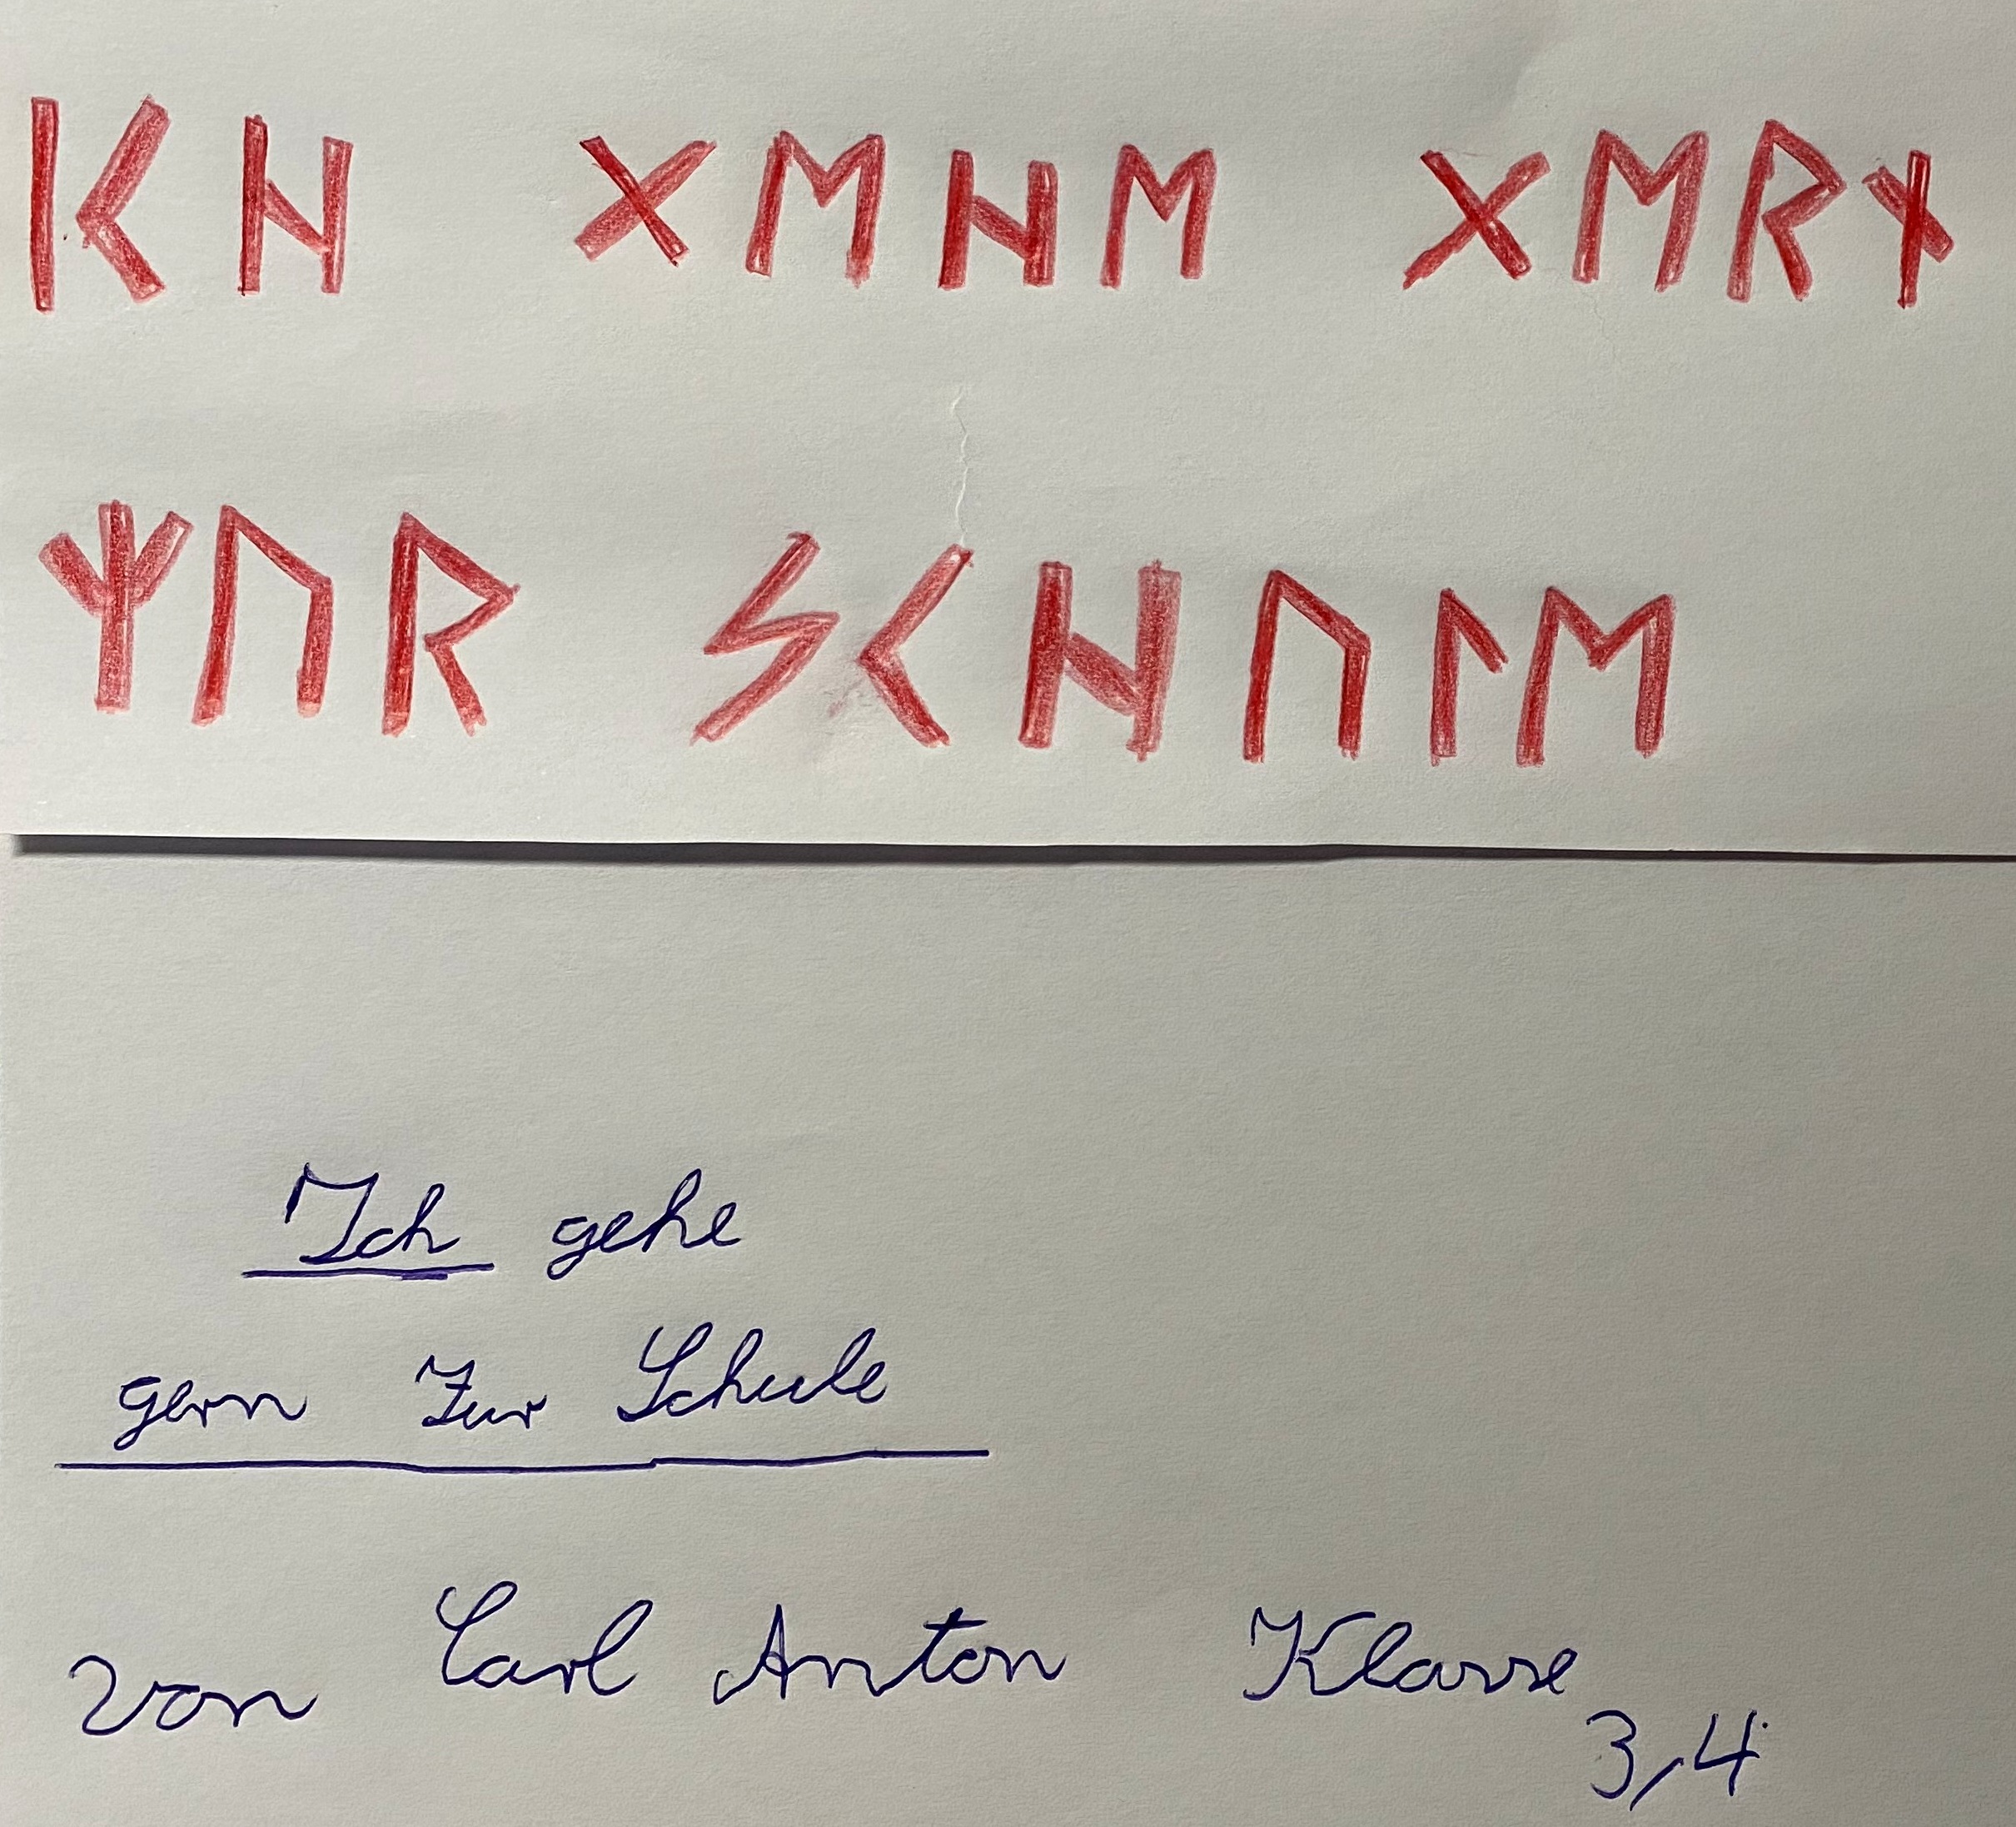 ᛁᚲᚺ ᚷᛖᚺᛖ ᚷᛖᚱᚾ
ᛉᚢᚱ ᛋᚲᚺᚢᛚᛖ
Ich gehe
gern Zur Schule
von Carl Anton Klasse
3,4